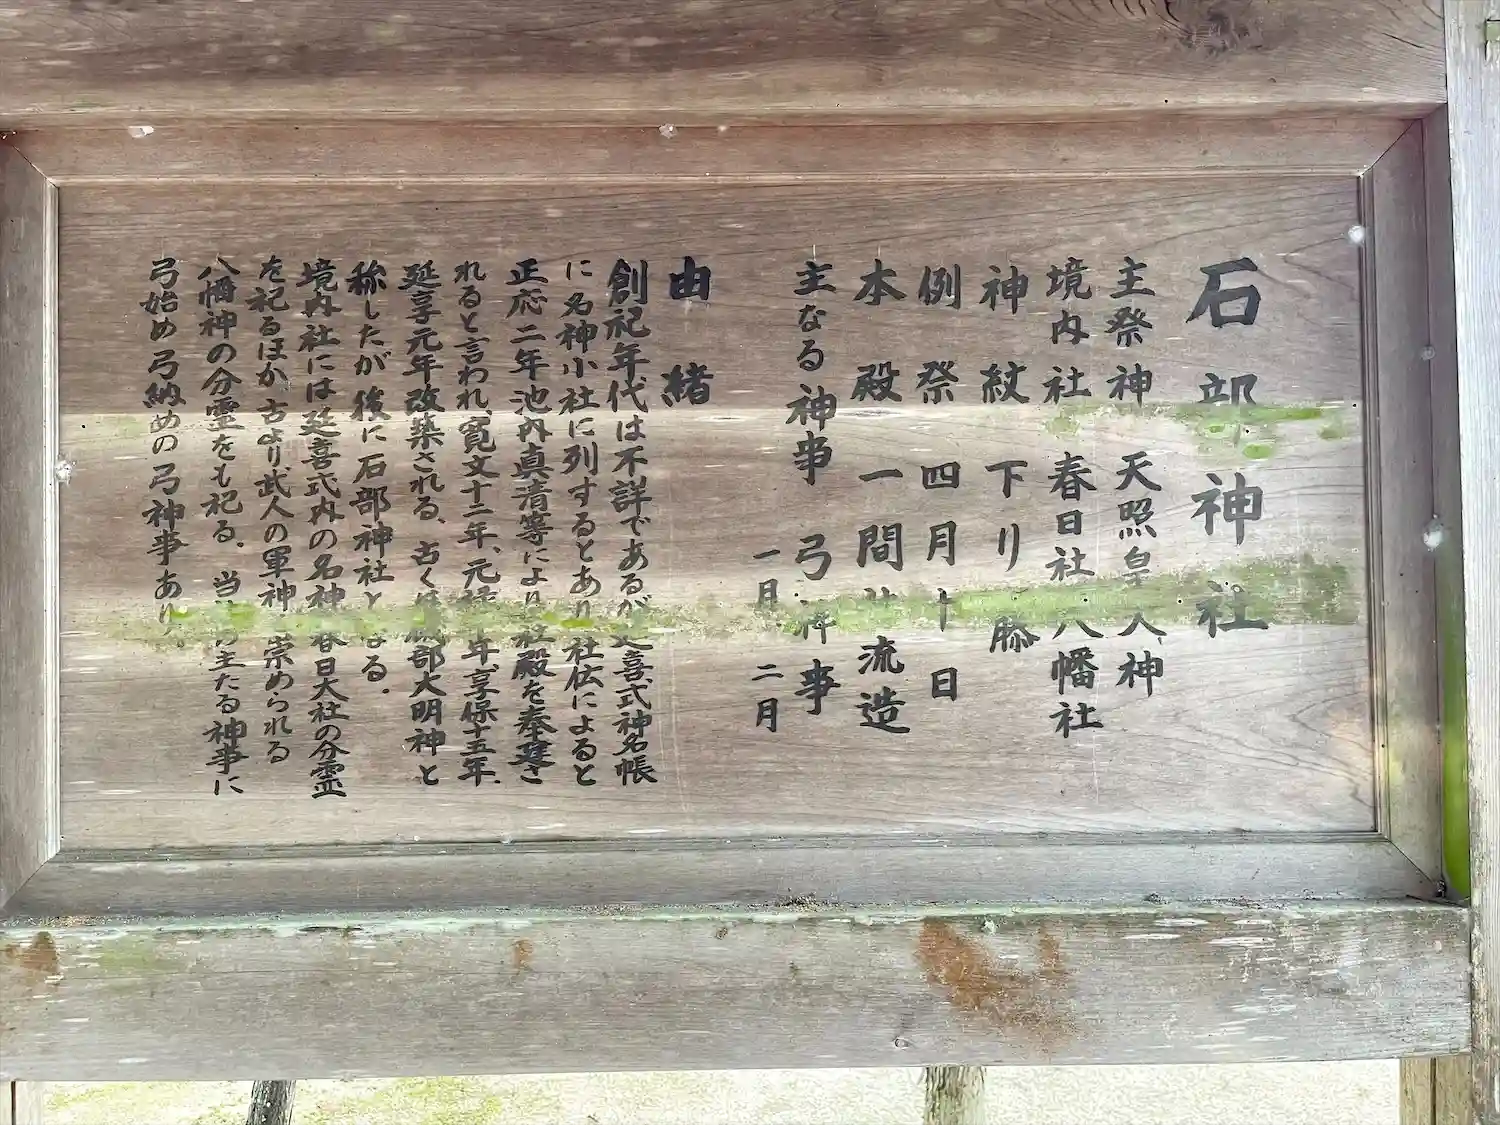 石部神社
主祭神　天照皇大神
境内社　春日社　八幡社
神紋　下り藤
例祭　四月十日
本殿　一間社流造
主なる神事　弓神事
一月　二月
由緒
創祀年代は不詳であるが延喜式神名帳
に名神小社に列するとあり社伝によると
正応二年池内真清等により社殿を奉建さ
れると言われ、寛文十二年、元禄　年、享保十五年、
延享元年改築される、古くは磯部大明神と
称したが後に石部神社となる.
境内社には延喜式内の名神春日大社の分霊
を祀るほか、古より武人の軍神　崇められる
八幡神の分霊をも祀る.　当　の主たる神事に
弓始め弓納めの弓神事あり。